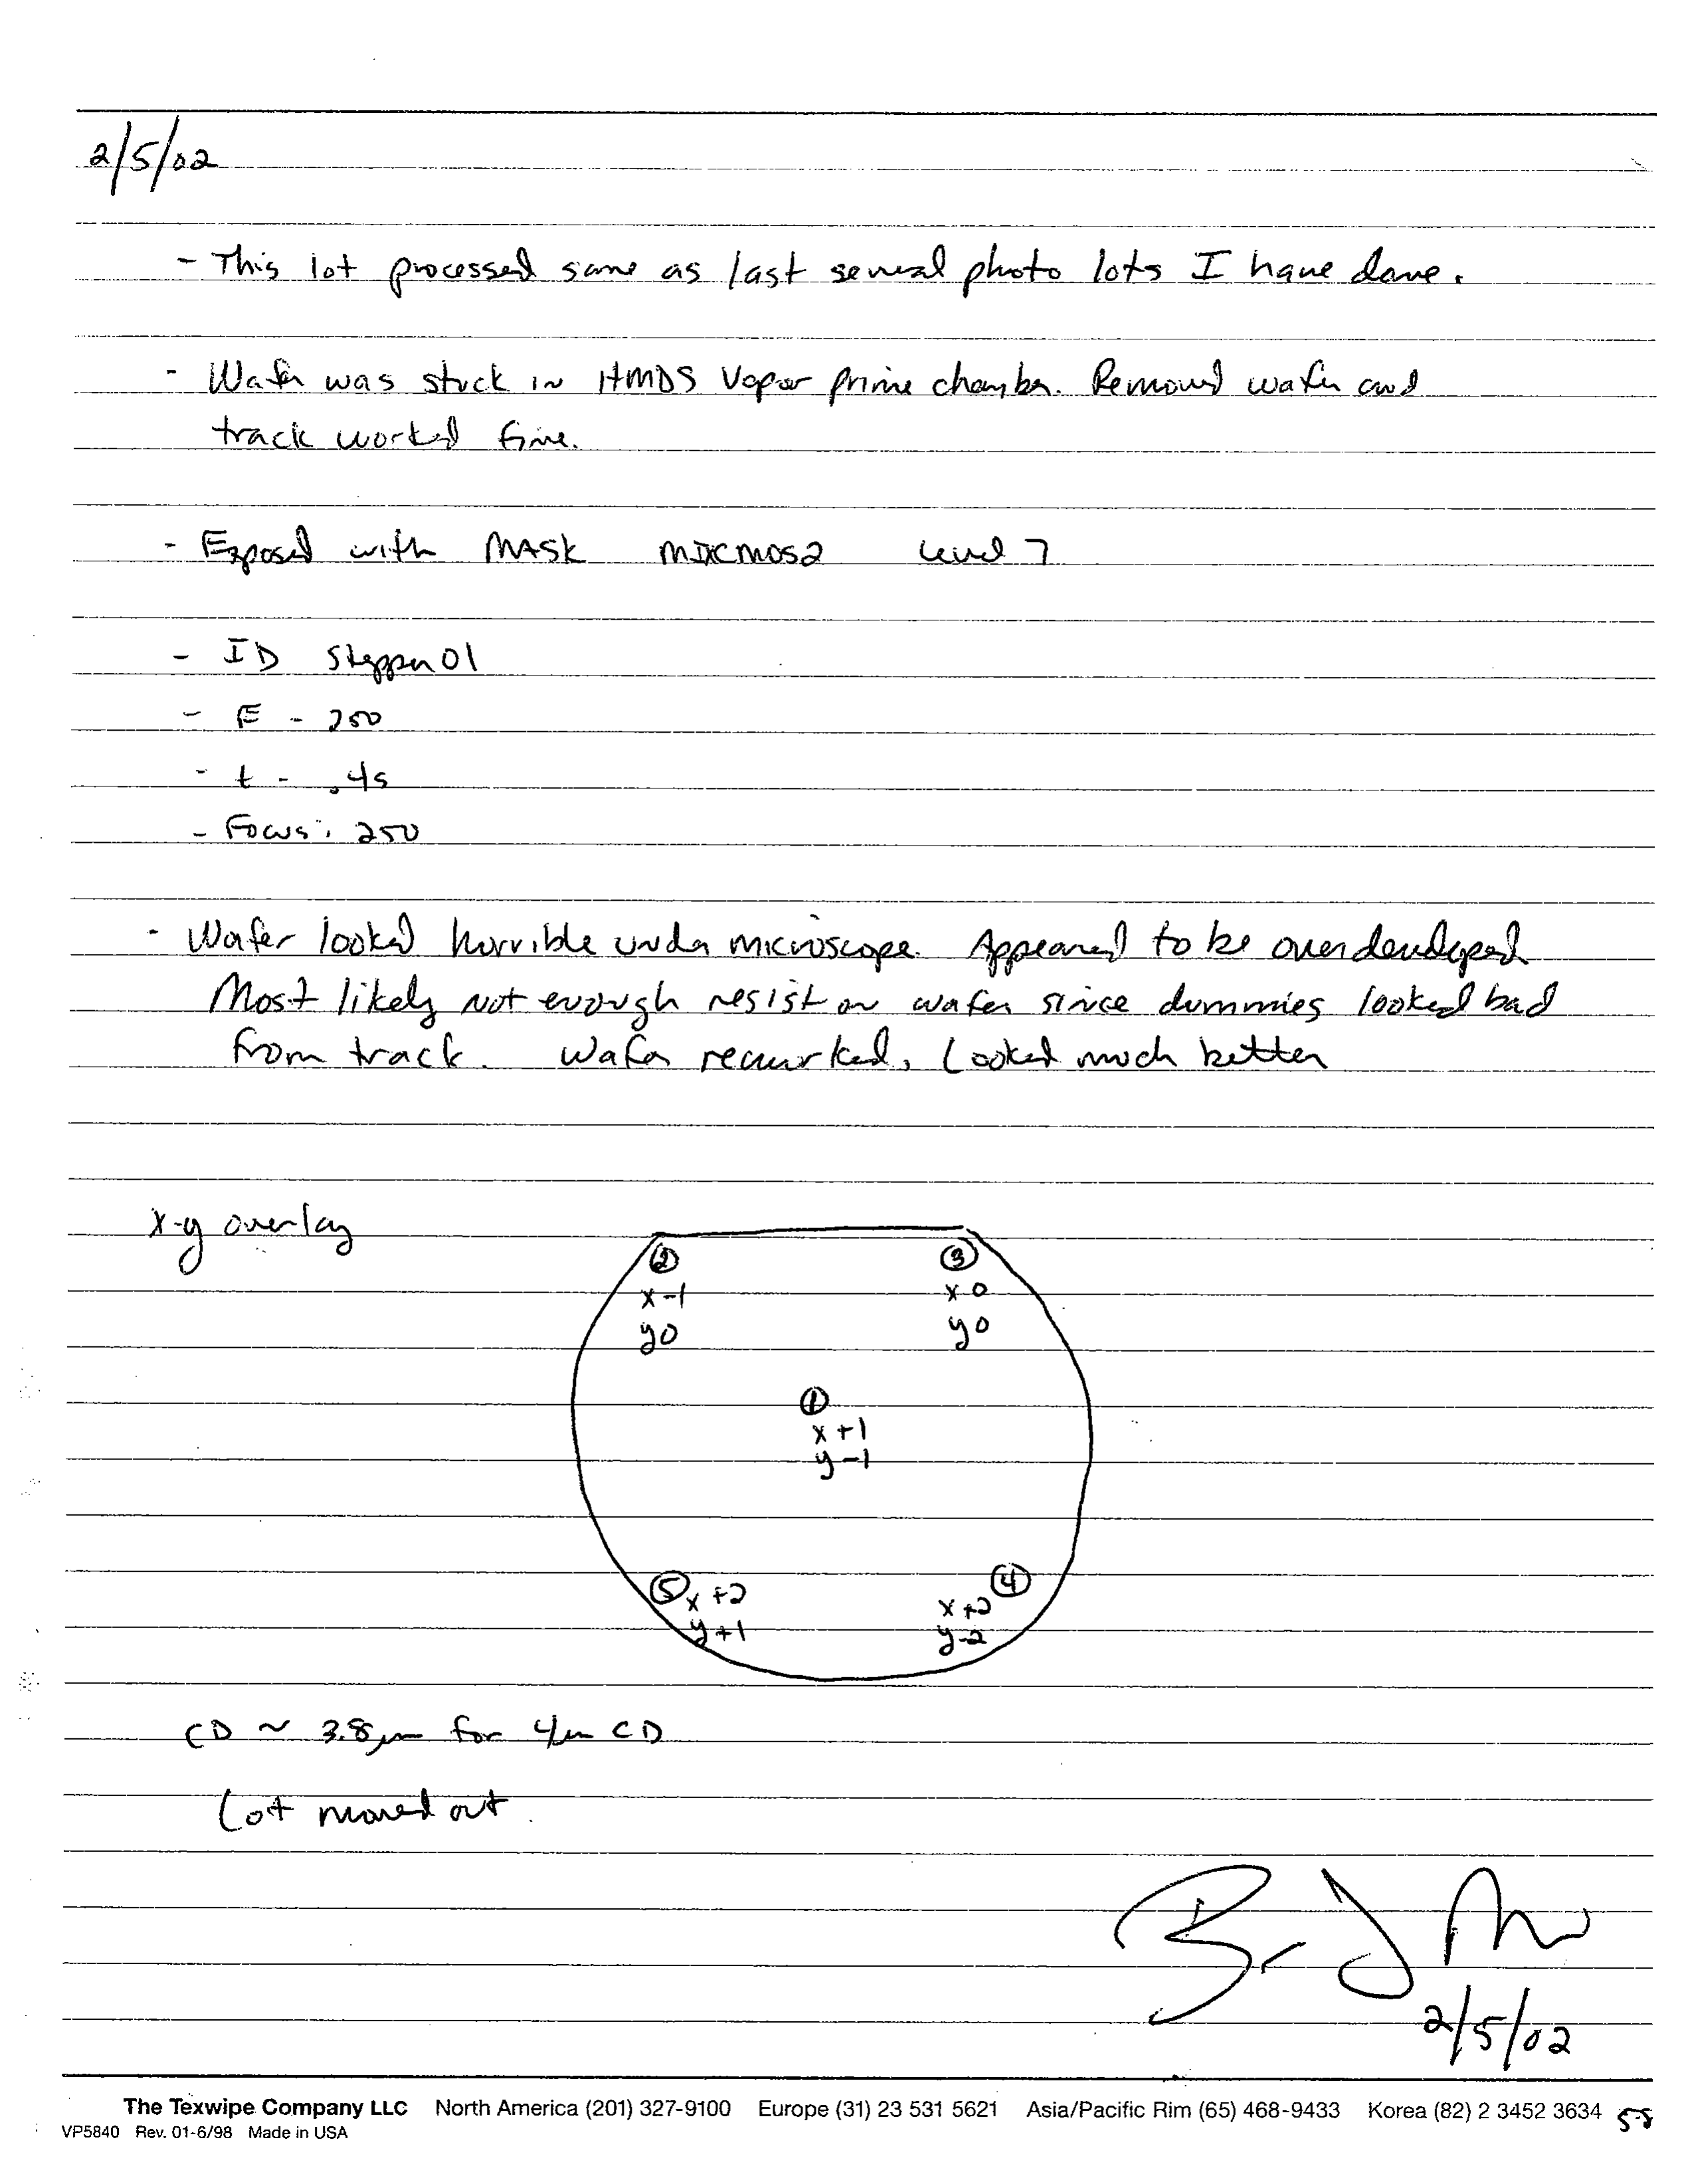 2/5/02
- This lot processed same as last several photo lots I have done.
- Wafer was stuck in HMDS Vapor prime chamber. Removed wafer and
track worked fine.
- Exposed with MASK MIXCMOS2 Level 7
- ID Stepper01
- E - 250
- t - .45
- Focus: 250
- Wafer looked horrible under microscope. Appeared to be overdeveloped
Most likely not enough resist on wafer since dummies looked bad
from track. Wafer reworked, Looked much better
x-y overlay
② ③
x-1 x 0
y0 y0
①
x +1
y -1
⑤ x +2 ④ x +2
y +1 y -2
CD ~ 3.8µm for 4µm CD
Lot moved out.
2/5/02
The Texwipe Company LLC North America (201) 327-9100 Europe (31) 23 531 5621 Asia/Pacific Rim (65) 468-9433 Korea (82) 2 3452 3634 58
VP5840 Rev. 01-6/98 Made in USA